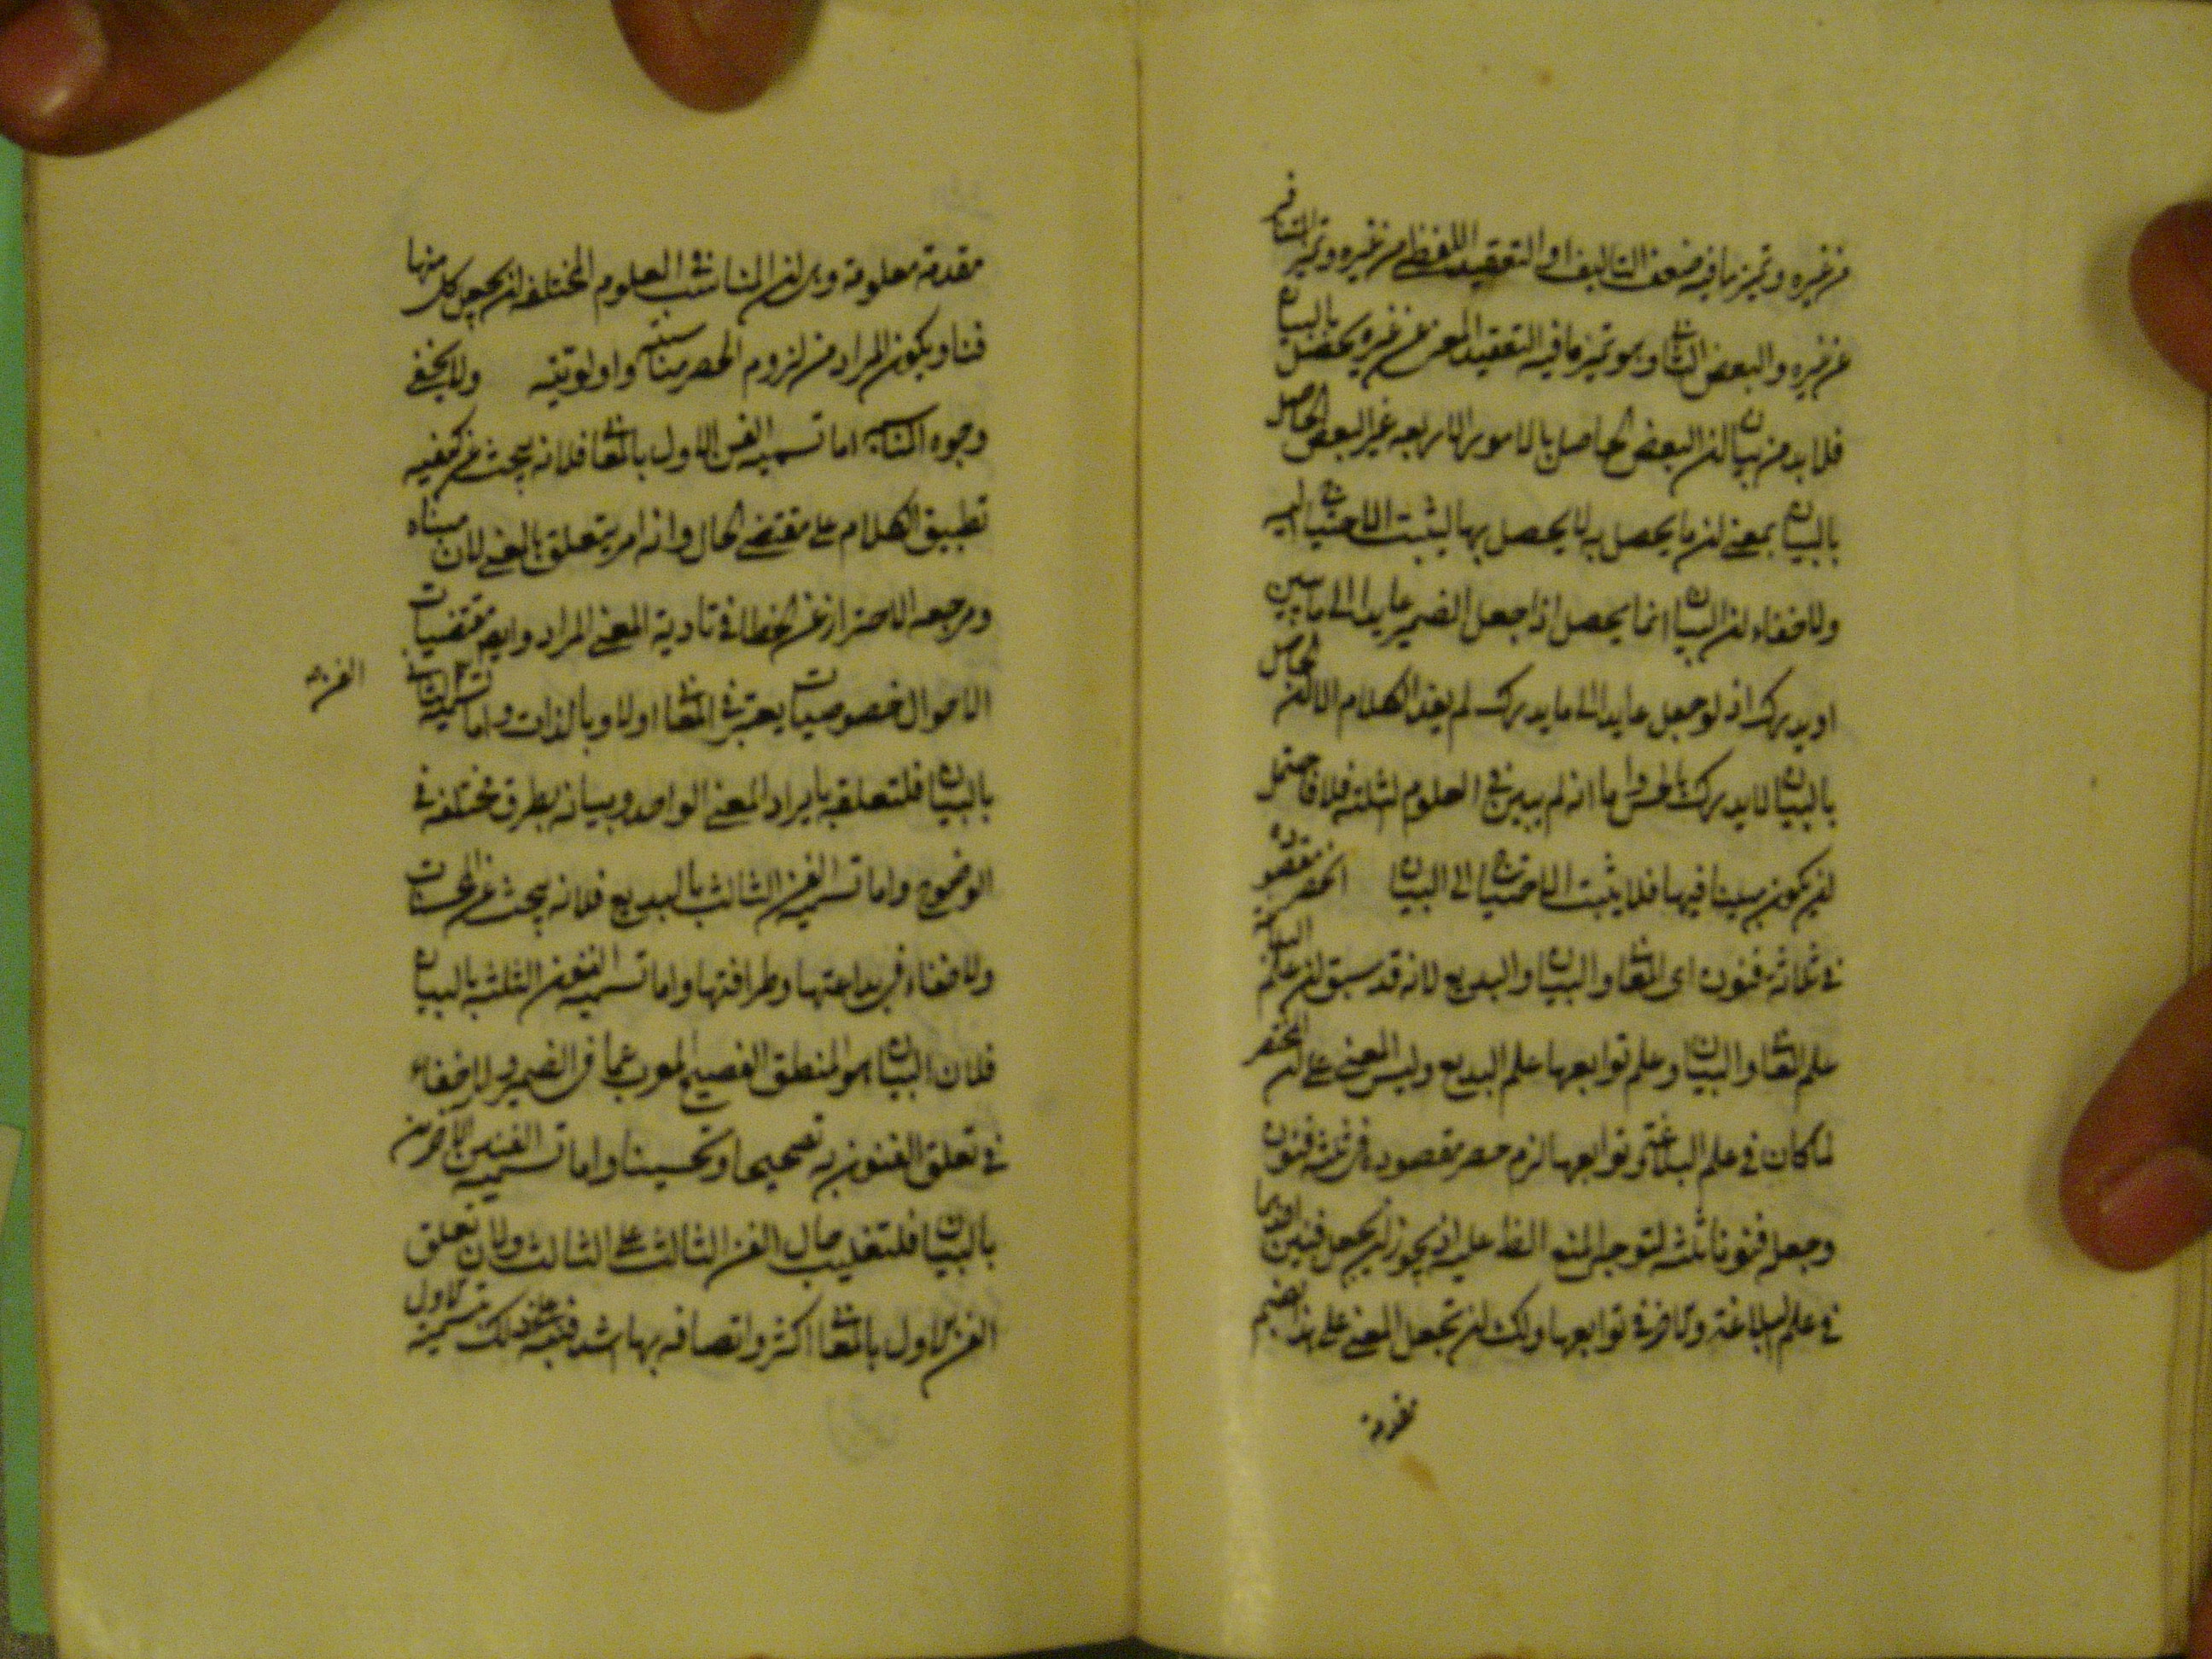 من غيره وتميز ما فيه ضعف التاليف او التعقيد اللفظي من غيره وتميز التنافر
عن غيره والبعض الثاني وهو تميز ما فيه التعقيد المعنوي عن غيره يحصل بالبيان
فلا بد من بيان ان البعض الحاصل بالامور الاربعة غير البعض الحاصل
بالبيان بمعنى ان ما يحصل به لا يحصل بها ليثبت الاحتياج اليه
ولا خفاء ان البيان انما يحصل اذا جعل الضمير عايدا الى ما يبين
او يدرك اذ لو جعل عايدا الى ما يدرك لم يفد الكلام الا ان الحاصل
بالبيان لا يدرك بالحس واما انه لم يبين في العلوم الثلثة فلا فاحتمل
ان يكون مبينا فيها فلا يثبت الاحتياج الى البيان انحصر مقصوده
في ثلاثة فنون اى المعاني والبيان والبديع لانه قد سبق ان علم البلاغة
علم المعاني والبيان وعلم توابعها علم البديع وليس المعنى على ان المختصر
لما كان في علم البلاغة وتوابعها لزم حصر مقصوده في ثلثة فنون
وجعله فنونا ثلثة لتوجه المنع الظ عليه اذ يجوز ان يجعل فنين احدهما
في علم البلاغة والاخر في توابعها ولك ان تجعل المعنى على هذا بضم
مقدمة معلومة وهى ان المناسب في العلوم المختلفة ان يجعل كل منها
فنا ويكون المراد من لزوم الحصر مناسبته واولويته ولا يخفى
وجوه المناسبة اما تسمية الفن الاول بالمعاني فلانه يبحث عن كيفية
تطبيق الكلام على مقتضى الحال وانه امر يتعلق بالمعنى لان مبناه
ومرجعه الاحتراز عن الخطا في تادية المعنى المراد وايضا مقتضيات
الاحوال خصوصيات يعتبر في المعاني اولا وبالذات واما تسمية الثاني
الفن
بالبيان فلتعلقه بايراد المعنى الواحد وبيانه بطرق مختلفة في
الوضوح واما تسمية الفن الثالث بالبديع فلانه يبحث عن المحسنات
ولا خفاء في بداعتها وظرافتها واما تسمية الفنون الثلثة بالبيان
فلان البيان هو المنطق الفصيح المعرب عما في الضمير ولا خفاء
في تعلق الفنون به تصحيحا وتحسينا واما تسمية الفنين الاخرين
بالبيان فلتغليب حال الفن الثالث على الثالث ولان تعلق
الفن الاول بالمعاني اكثر واتصافه بها اشد فنبه على ذلك تسمية الاول